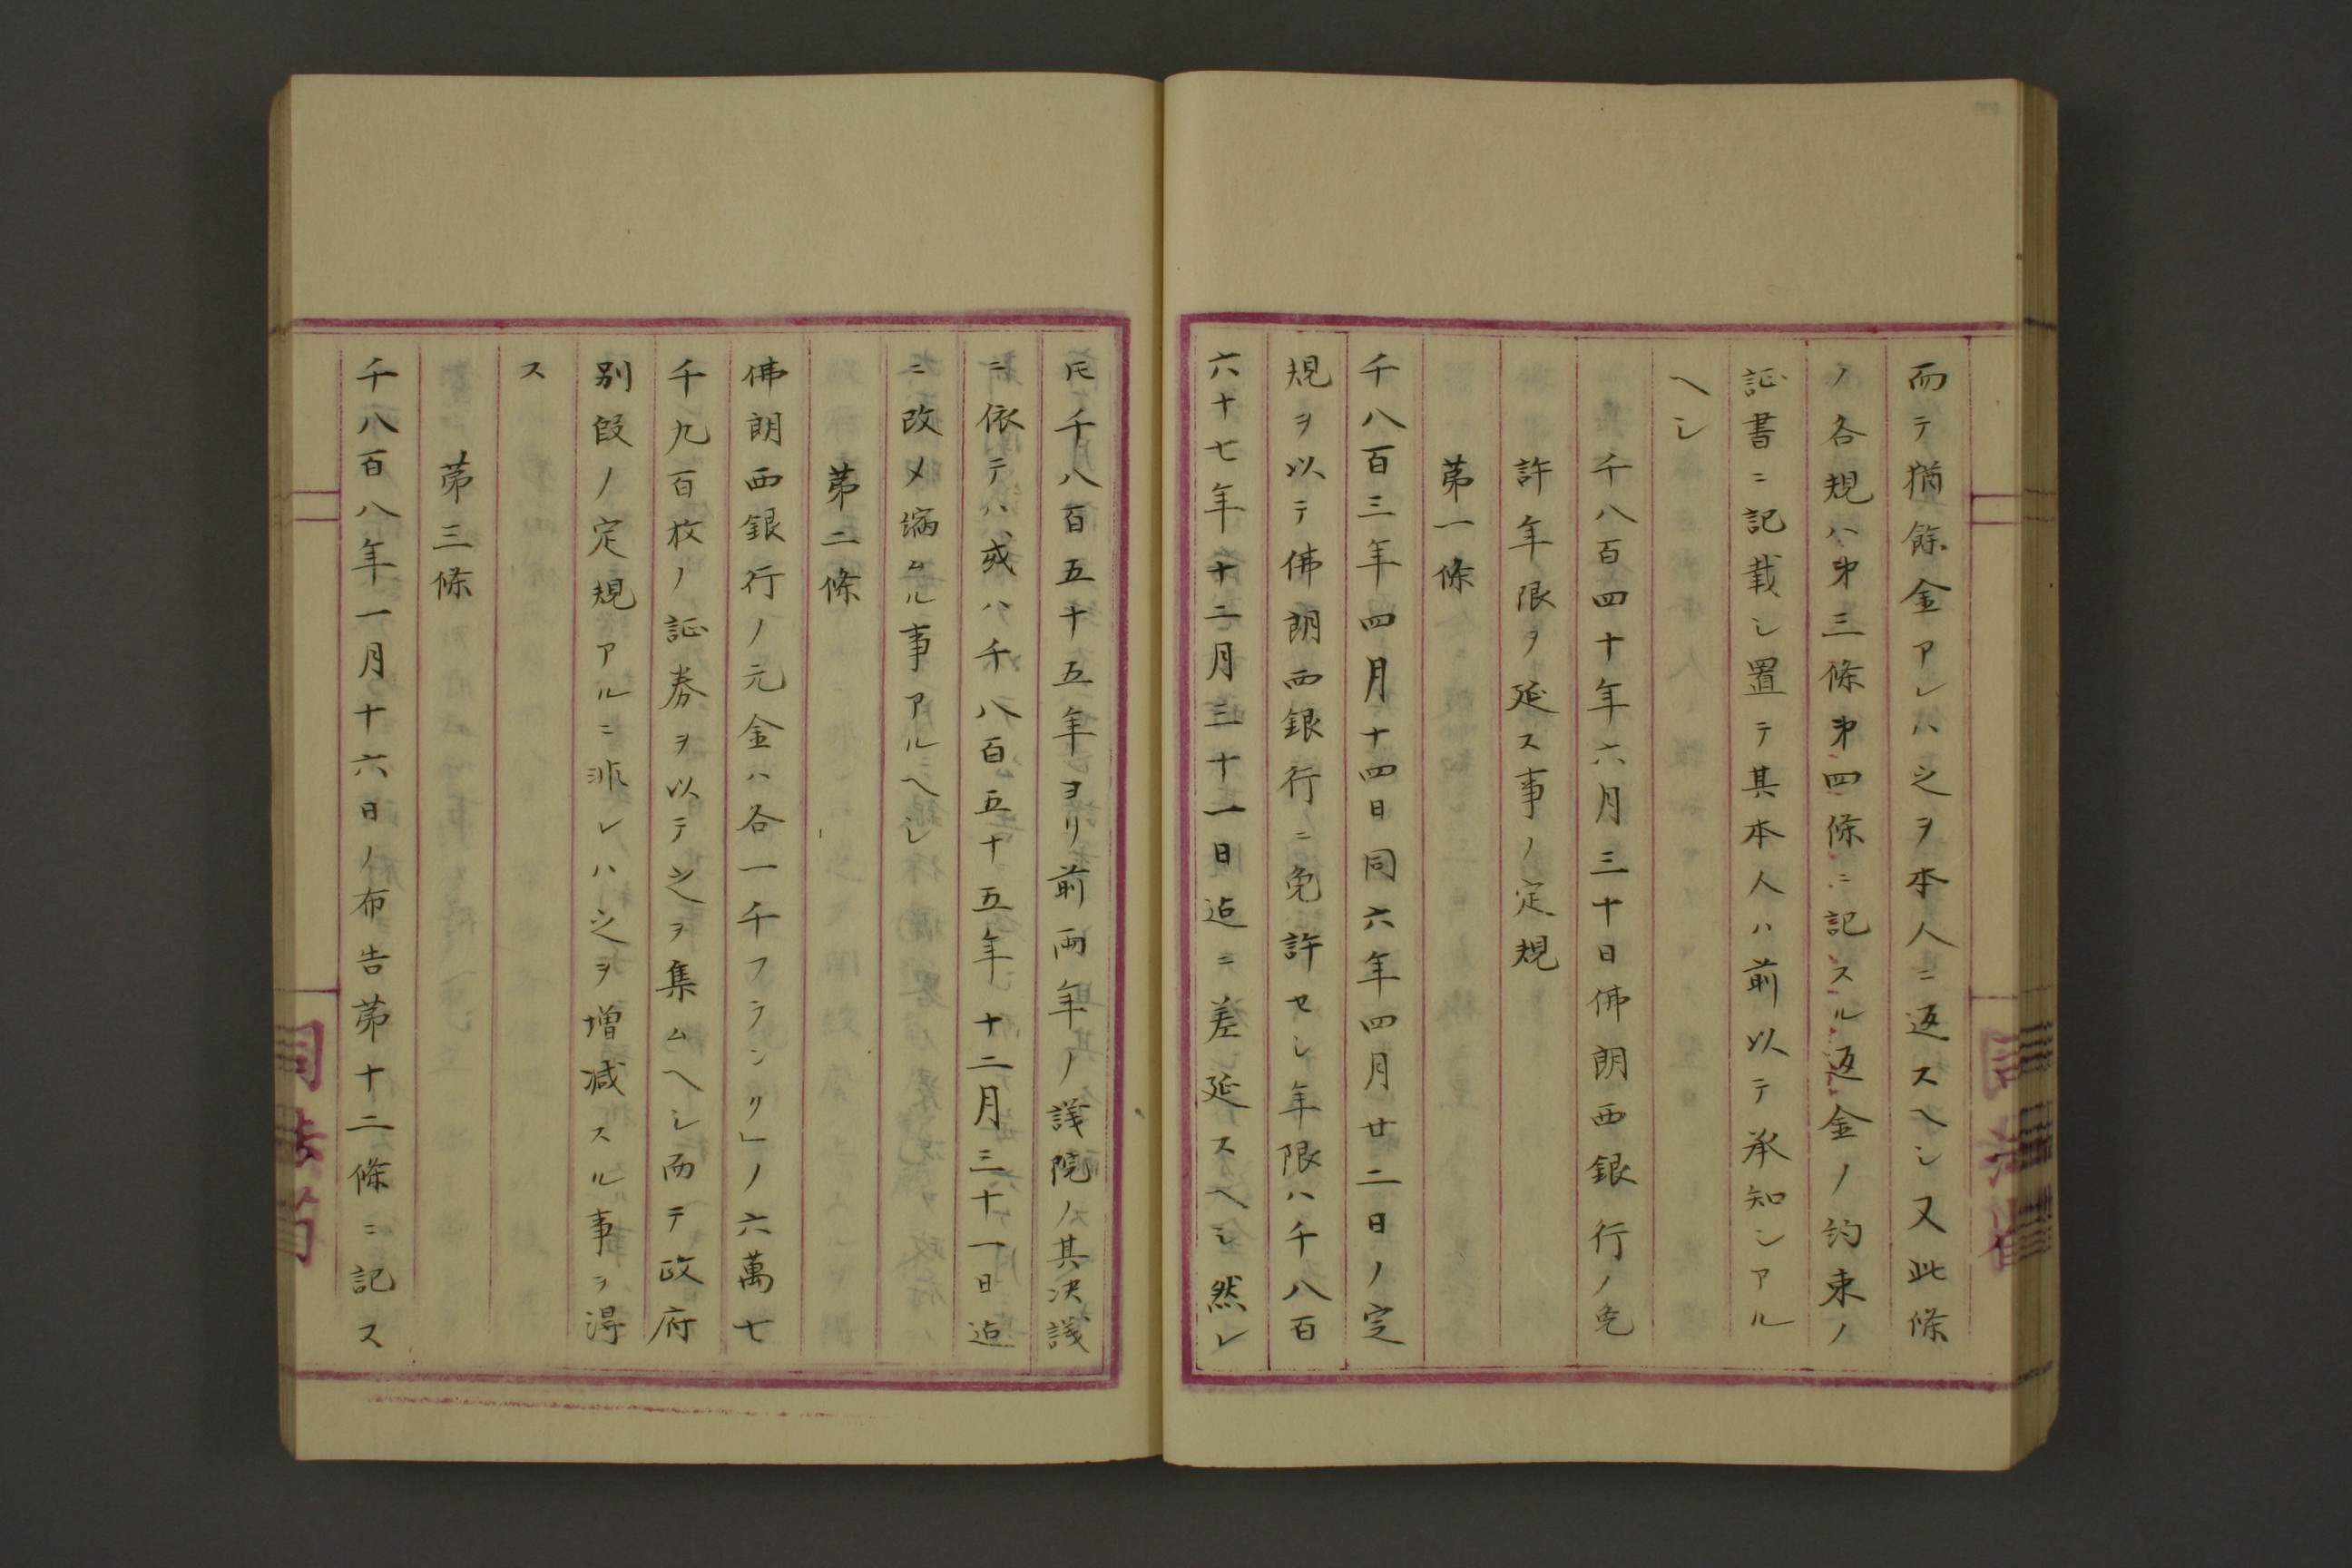 而テ猶餘金アレハ之ヲ本人ニ返スヘシ又此條
ノ各規ハ第三條第四條ニ記スル返金ノ約束ノ
証書ニ記載シ置テ其本人ハ前以テ承知シアル
ヘシ
千八百四十年六月三十日佛朗西銀行ノ免
許年限ヲ延ス事ノ定規
第一條
千八百三年四月十四日同六年四月廿二日ノ定
規ヲ以テ佛朗西銀行ニ免許セシ年限ハ千八百
六十七年十二月三十一日迠ニ差延スヘシ然レ
𪜈千八百五十五年ヨリ前両年ノ議院ノ其决議
ニ依テハ或ハ千八百五十五年十二月三十一日迠
ニ改メ満ル事アルヘシ
第二條
佛朗西銀行ノ元金ハ各一千フランク」ノ六萬七
千九百枚ノ証券ヲ以テ之ヲ集ムヘシ而テ政府
別段ノ定規アルニ非レハ之ヲ増減スル事ヲ得
ス
第三條
千八百八年一月十六日ノ布告第十二條ニ記ス
司法省
司法省